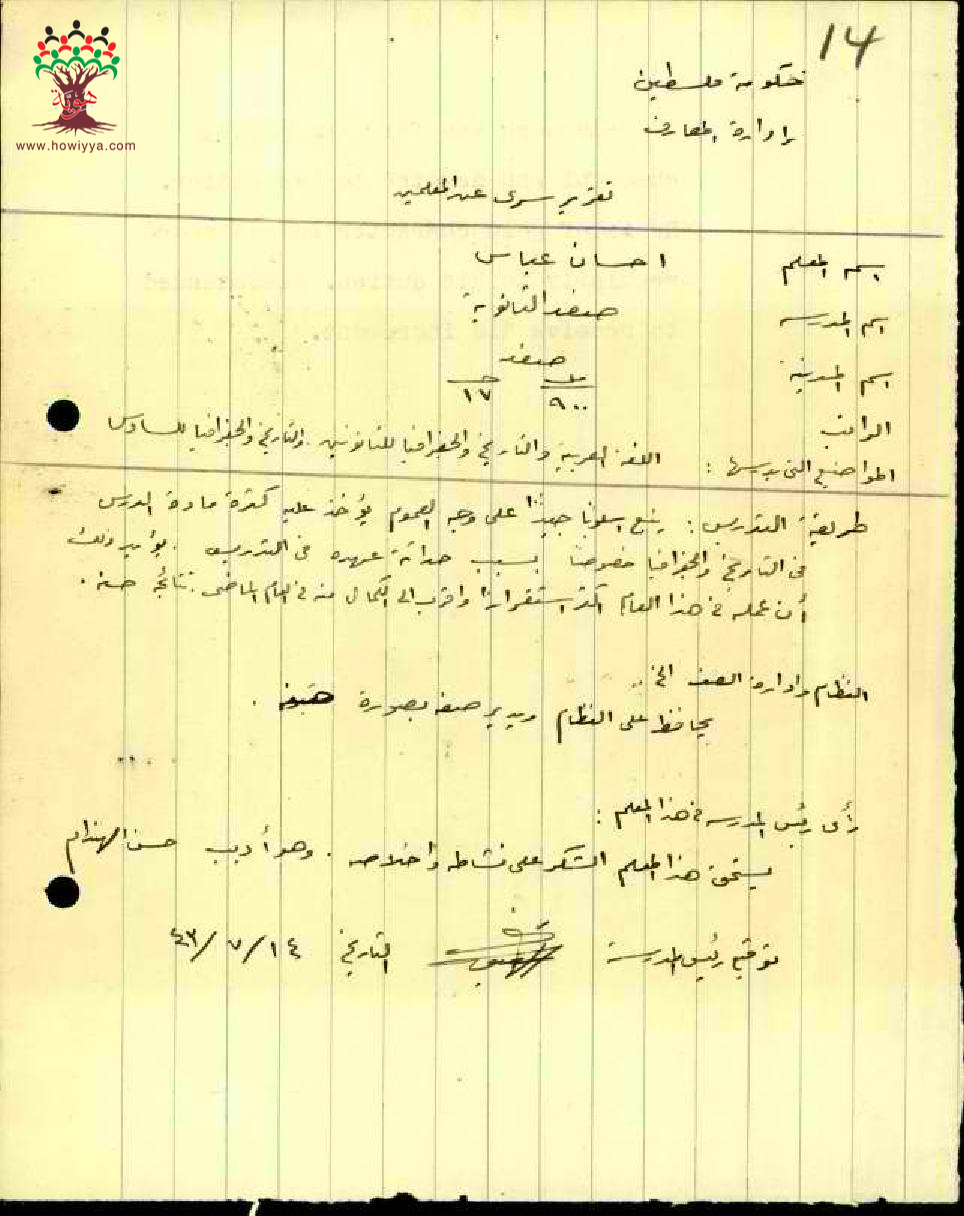 14
هوية
www.howiyya.com
حكومة فلسطين
إدارة المعارف
تقرير سرى عن المعلمين
اسم المعلم احسان عباس
اسم المدرسه صفد الثانوية
اسم المدينة صفد
الراتب
٩٠٠ ١٧
المواضيع التى يدرسها : اللغة العربية والتاريخ والجغرافيا للثانويين . والتاريخ والجغرافيا للسادس
طريقة التدريس : يتبع اسلوبًا جيدًا على وجه العموم يؤخذ عليه كثرة مادة الدرس
فى التاريخ والجغرافيا خصوصًا بسبب حداثة عهده فى التدريس . يؤيد ذلك
أن عمله فى هذا العام اكثر استقرارًا واقرب الى الكمال منه فى العام الماضى . نتائجه حسنة .
النظام وادارة الصف الخ ..
يحافظ على النظام ويدير صفه بصورة .
رأى رئيس المدرسه فى هذا المعلم :
يستحق هذا المعلم الشكر على نشاطه واخلاصه . وهو أديب حسن الهندام
توقيع رئيس المدرسة التاريخ ١٤/٧/٤٣